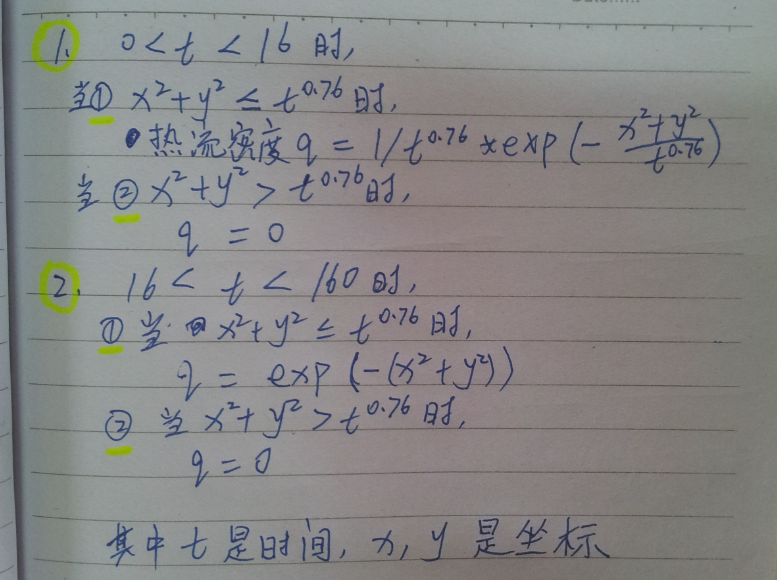 1. 0 < t < 16 时,
当① x²+y² ≤ t^0.76 时,
• 热流密度 q = 1/t^0.76 *exp (- (x²+y²)/t^0.76)
当 ② x²+y² > t^0.76 时,
q = 0
2. 16 < t < 160 时,
① 当 x²+y² ≤ t^0.76 时,
q = exp (-(x²+y²))
② 当 x²+y² > t^0.76 时,
q = 0
其中 t 是时间, x, y 是坐标